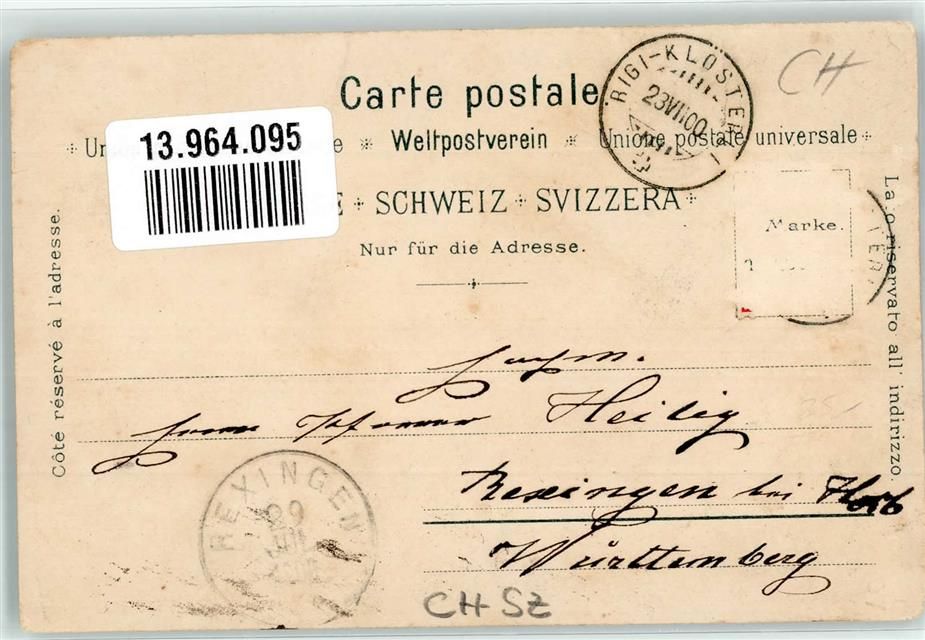 Carte postale
RIGI-KLÖSTERLI
23 VII 00
CH
13.964.095
Weltpostverein * Unione postale universale
SCHWEIZ + SVIZZERA
Nur für die Adresse.
Marke.
Côté réservé à l'adresse.
Lato riservato all' indirizzo.
Herrn Pfarrer Heilig
Rexingen bei Horb
Württemberg
REXINGEN
CH SZ